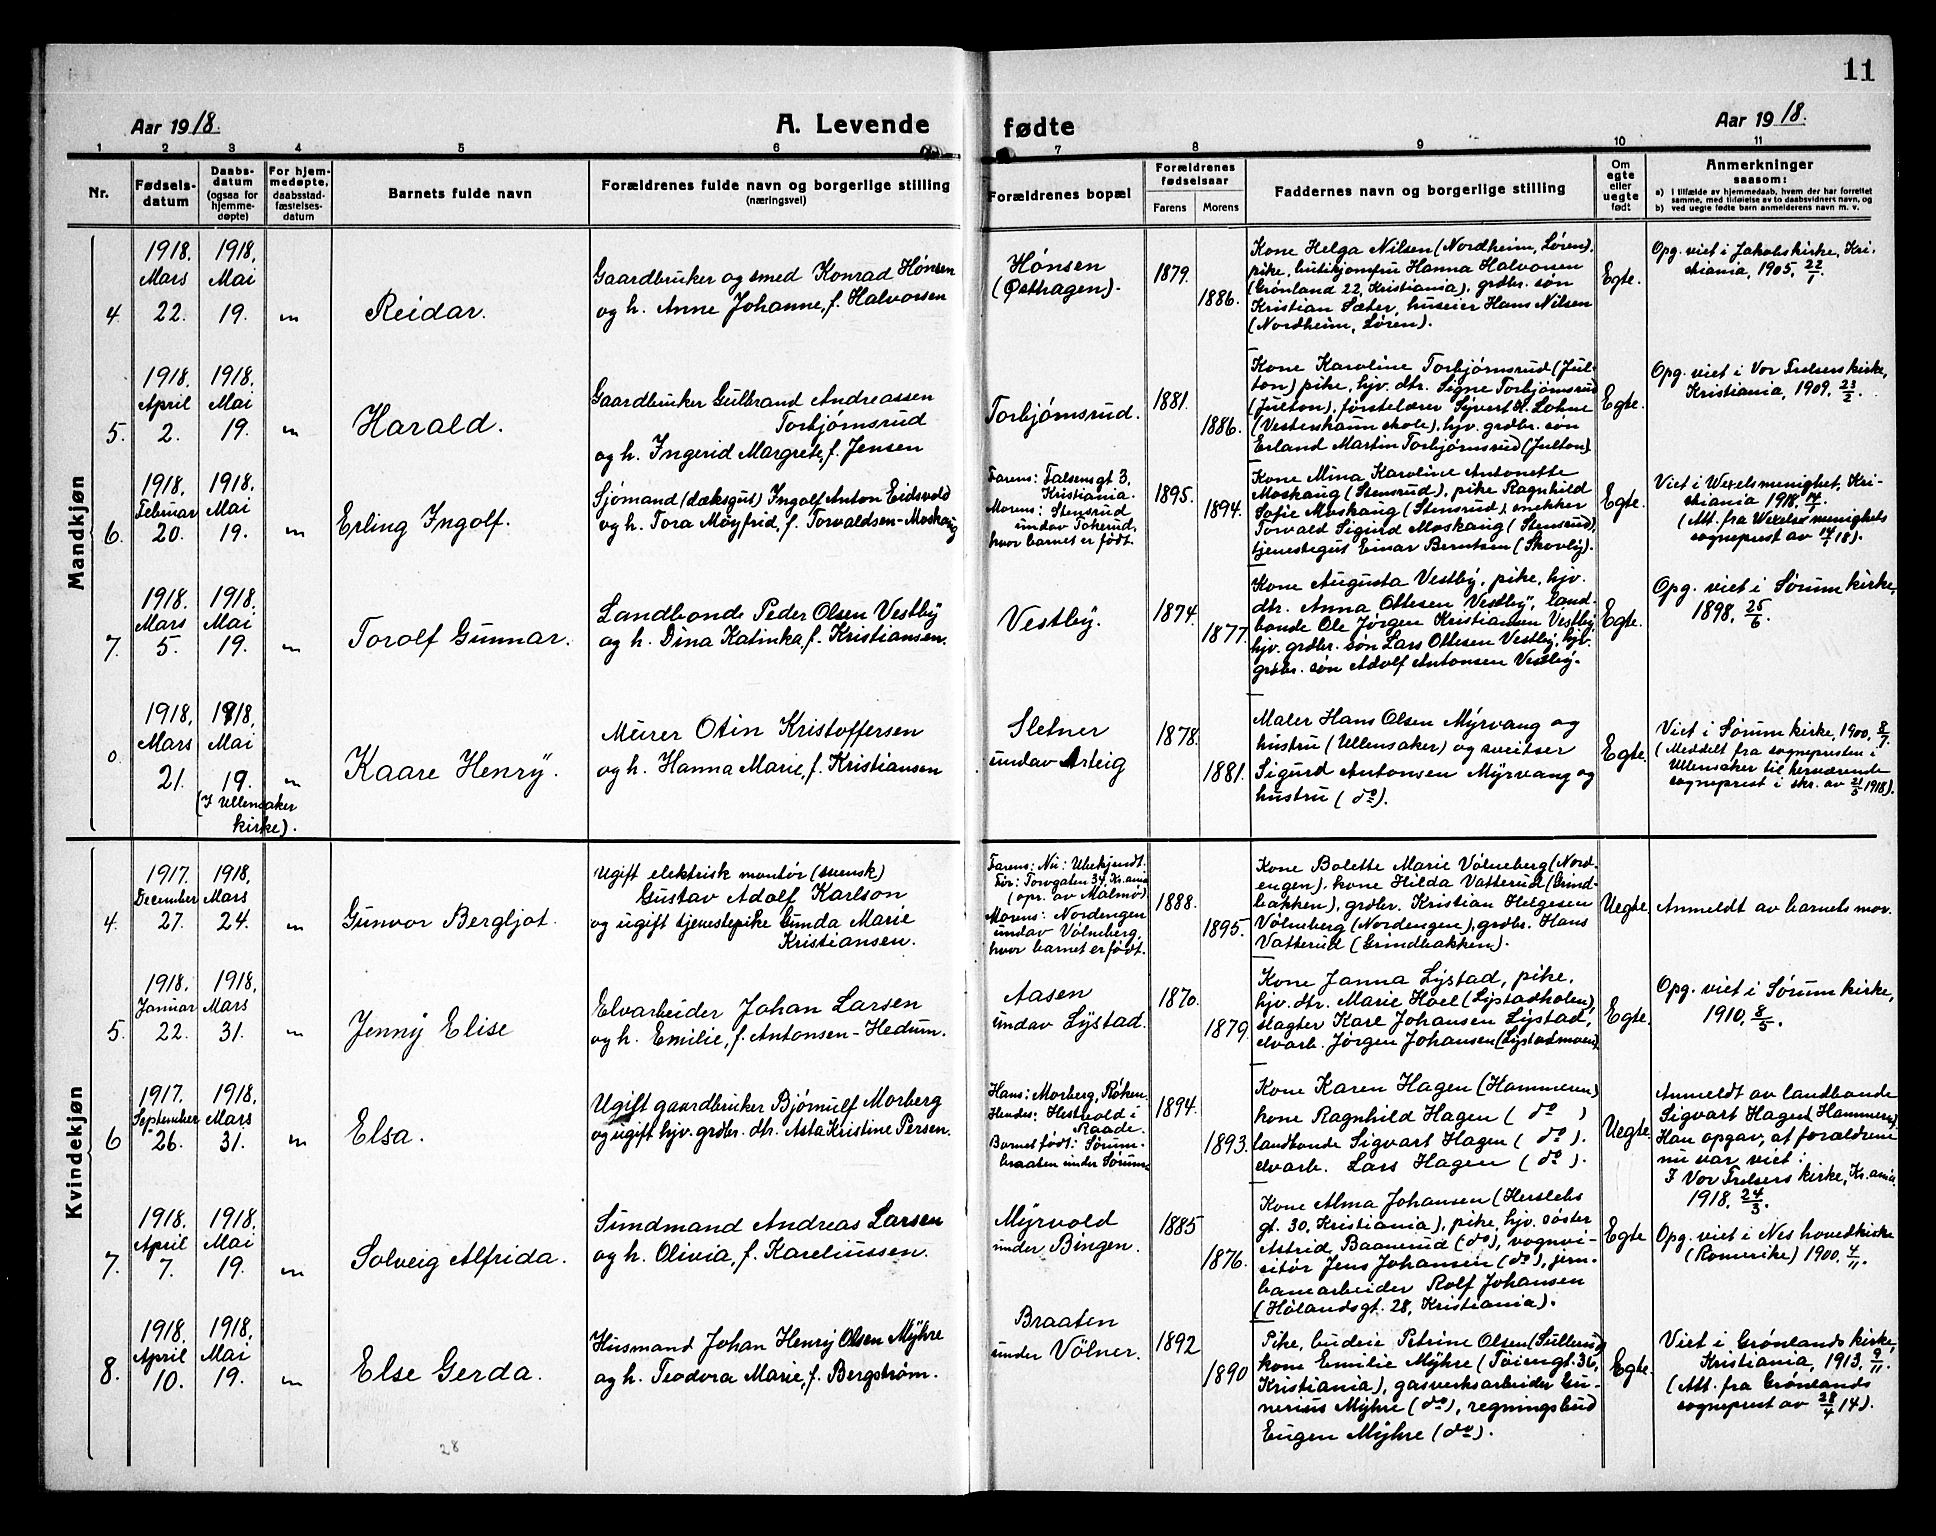 11
Aar 1918.
A. Levende
fødte
Aar 1918.
1 2 3 4 5 6 7 8 9 10 11
Nr.
Fødsels-
datum
Daabs-
datum
(ogsaa for
hjemme-
døpte)
For hjem-
medøpte,
daabsstad-
fæstelses-
datum
Barnets fulde navn
Forældrenes fulde navn og borgerlige stilling
(næringsvei)
Forældrenes bopæl
Forældrenes
fødselsaar
Farens
Morens
Faddernes navn og borgerlige stilling
Om
egte
eller
uegte
født
Anmerkninger
saasom:
a) I tilfælde av hjemmedaab, hvem der har forrettet
samme, med tilføielse av to daabsvidners navn, og
b) ved uegte fødte barn anmelderens navn m. v.
Mandkjøn
4.
1918.
Mars
22.
1918.
Mai
19.
"
Reidar.
Gaardbruker og smed Konrad Hønsen
og h. Anne Johanne, f. Halvorsen
Hønsen
(Østhagen).
1879.
1886.
Kone Helga Nilsen (Nordheim, Løren).
pike, butikjomfru Hanna Halvorsen
(Grønland 22, Kristiania), grdbr. søn
Kristian Sæter, huseier Hans Nilsen
(Nordheim, Løren).
Egte.
Opg. viet i Jakobs kirke, Kri-
stiania, 1905, 22/7.
5.
1918.
April
2.
1918.
Mai
19.
"
Harald.
Gaardbruker Gulbrand Andreassen
Torbjørnsrud
og h. Ingerid Margrete, f. Jensen
Torbjørnsrud.
1881.
1886.
Kone Karoline Torbjørnsrud (Jul-
ton) pike, hjv. dtr. Signe Torbjørnsrud
(Julton), førstelærer Syvert H. Lohne
(Vestenhaum skole), hjv. grdbr. søn
Erland Martin Torbjørnsrud (Julton).
Egte.
Opg. viet i Vor Frelsers kirke,
Kristiania, 1909, 23/2.
6.
1918.
Februar
20.
1918.
Mai
19.
"
Erling Ingolf.
Sjømand (dæksgut) Ingolf Anton Eidsvold
og h. Tora Møyfrid, f. Torvaldsen-Moskaug
Farens: Falsensgt 3,
Kristiania.
Morens: Stensrud
undav Tokerud,
hvor barnet er født.
1895.
1894.
Kone Mina Karoline Antonette
Moskaug (Stensrud), pike Ragnhild
Sofie Moskaug (Stensrud), snekker
Torvald Sigurd Moskaug (Stensrud),
tjenestegut Einar Berntsen (Skovly).
Egte.
Viet i Wexels menighet, Kri-
stiania 1918, 14/1.
(Att. fra Wexelsmenighets
sogneprest av 14/1 18).
7.
1918.
Mars
5.
1918.
Mai
19.
"
Torolf Gunnar.
Landbonde Peder Olsen Vestby
og h. Dina Katinka, f. Kristiansen.
Vestby.
1874.
1877.
Kone Augusta Vestby, pike, hjv.
dtr. Anna Ottesen Vestby, land-
bonde Ole Jørgen Kristiansen Vestby
hjv. grdbr. søn Lars Ottesen Vestby, hjv.
grdbr. søn Adolf Antonsen Vestby.
Egte.
Opg. viet i Sørum kirke,
1898, 25/6.
0.
1918,
Mars
21.
1918.
Mai
19.
(I Ullensaker
kirke).
"
Kaare Henry.
Murer Otin Kristoffersen
og h. Hanna Marie, f. Kristiansen
Sletner
undav Arteig
1878.
1881.
Maler Hans Olsen Myrvang og
hustru (Ullensaker) og sveitser
Sigurd Antonsen Myrvang og
hustru (do).
Egte.
Viet i Sørum kirke, 1900, 8/7.
(Meddelt fra sognepresten i
Ullensaker til herværende
sogneprest i skr. av 21/5 1918).
Kvindekjøn
4.
1917.
December
27.
1918.
Mars
24.
"
Gunvor Bergljot.
Ugift elektrisk montør (svensk)
Gustav Adolf Karlson
og ugift tjenestepike Gunda Marie
Kristiansen.
Farens: Nu: Ubekjendt.
Før: Torvgaten 34, Kr.ania
(opr. av Malmø)
Morens: Nordengen
undav Vølneberg,
hvor barnet er født.
1888.
1895.
Kone Bolette Marie Vølneberg (Nord-
engen), kone Hilda Vatterud (Grind-
bakken), grdbr. Kristian Helgesen
Vølneberg (Nordengen), grdbr. Hans
Vatterud (Grindbakken).
Uegte.
Anmeldt av barnets mor.
5.
1918.
Januar
22.
1918.
Mars
31.
"
Jenny Elise
Elvarbeider Johan Larsen
og h. Emilie, f. Antonsen-Hedum.
Aasen
undav Lystad.
1870.
1879.
Kone Janna Lystad, pike,
hjv. dtr. Marie Hoel (Lystadholen),
slagter Karl Johansen Lystad,
elvarb. Jørgen Johansen (Lystadmoen).
Egte.
Opg. viet i Sørum kirke,
1910, 8/5.
6
1917.
September
26.
1918.
Mars
31.
"
Elsa.
Ugift gaardbruker Bjørnulf Morberg
og ugift hjv. grdbr. dtr. Asta Kristine Persen.
Hans: Morberg, Røken.
Hendes: Hestvold i
Raade.
Barnet født: Sørum-
braaten under Sørum.
1894.
1893.
Kone Karen Hagen (Hammeren)
kone Ragnhild Hagen (do)
landbonde Sigvart Hagen (do).
elvarb. Lars Hagen (do).
Uegte.
Anmeldt av landbonde
Sigvart Hagen (Hammeren).
Han opgav, at forældrene
nu var viet:
I Vor Frelsers kirke, Kr.ania
1918, 24/3.
7.
1918.
April
7.
1918.
Mai
19.
"
Solveig Alfrida.
Sundmand Andreas Larsen
og h. Olivia, f. Kareliussen.
Myrvold
under Bingen.
1885
1876.
Kone Alma Johansen (Herslebs
gt. 30, Kristiania), pike, hjv. søster
Astrid Baanerud (do), vognvi-
sitør Jens Johansen (do), jern-
banearbeider Rolf Johansen
(Hølandsgt. 28, Kristiania).
Egte
Opg. viet i Nes hovedkirke
(Romerike) 1900, 4/11.
8.
1918.
April
10.
1918.
Mai
19.
"
Else Gerda.
Husmand Johan Henry Olsen Myhre
og h. Teodora Marie, f. Bergstrøm.
Braaten
under Vølner.
1892
1890
Pike, budeie Petrine Olsen (Sullerud)
kone Emilie Myhre (Tøiengt. 36,
Kristiania), gasverksarbeider Gu-
nerius Myhre (do), regningsbud
Eugen Myhre (do).
Egte.
Viet i Grønlands kirke,
Kristiania, 1913, 9/11.
(Att. fra Grønlands
sogneprest av 28/4 14).
28